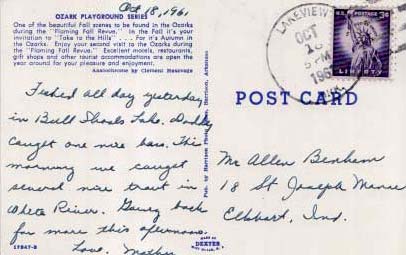 Oct 18, 1961
OZARK PLAYGROUND SERIES
One of the beautiful Fall scenes to be found in the Ozarks
during the "Flaming Fall Revue." In the Fall it's your
invitation to "Take to the Hills" . . . For it's Autumn in
the Ozarks. Enjoy your second visit to the Ozarks during
the "Flaming Fall Revue." Excellent motels, restaurants,
gift shops and other tourist accommodations are open the
year around for your pleasure and enjoyment.
Anscochrome by Clement Massengo
Fished all day yesterday
in Bull Shoals Lake. Daddy
caught one nice bass. This
morning we caught
several nice trout in
White River. Going back
for more this afternoon.
Love, Mother
17847-B
Pub. by Harrison Photo, Harrison, Arkansas
MADE BY
DEXTER
WEST NYACK, N. Y.
LAKEVIEW
OCT
18
PM
1961
ARK.
U.S. POSTAGE
3¢
LIBERTY
POST CARD
Mr Allen Benham
18 St Joseph Manor
Elkhart, Ind.